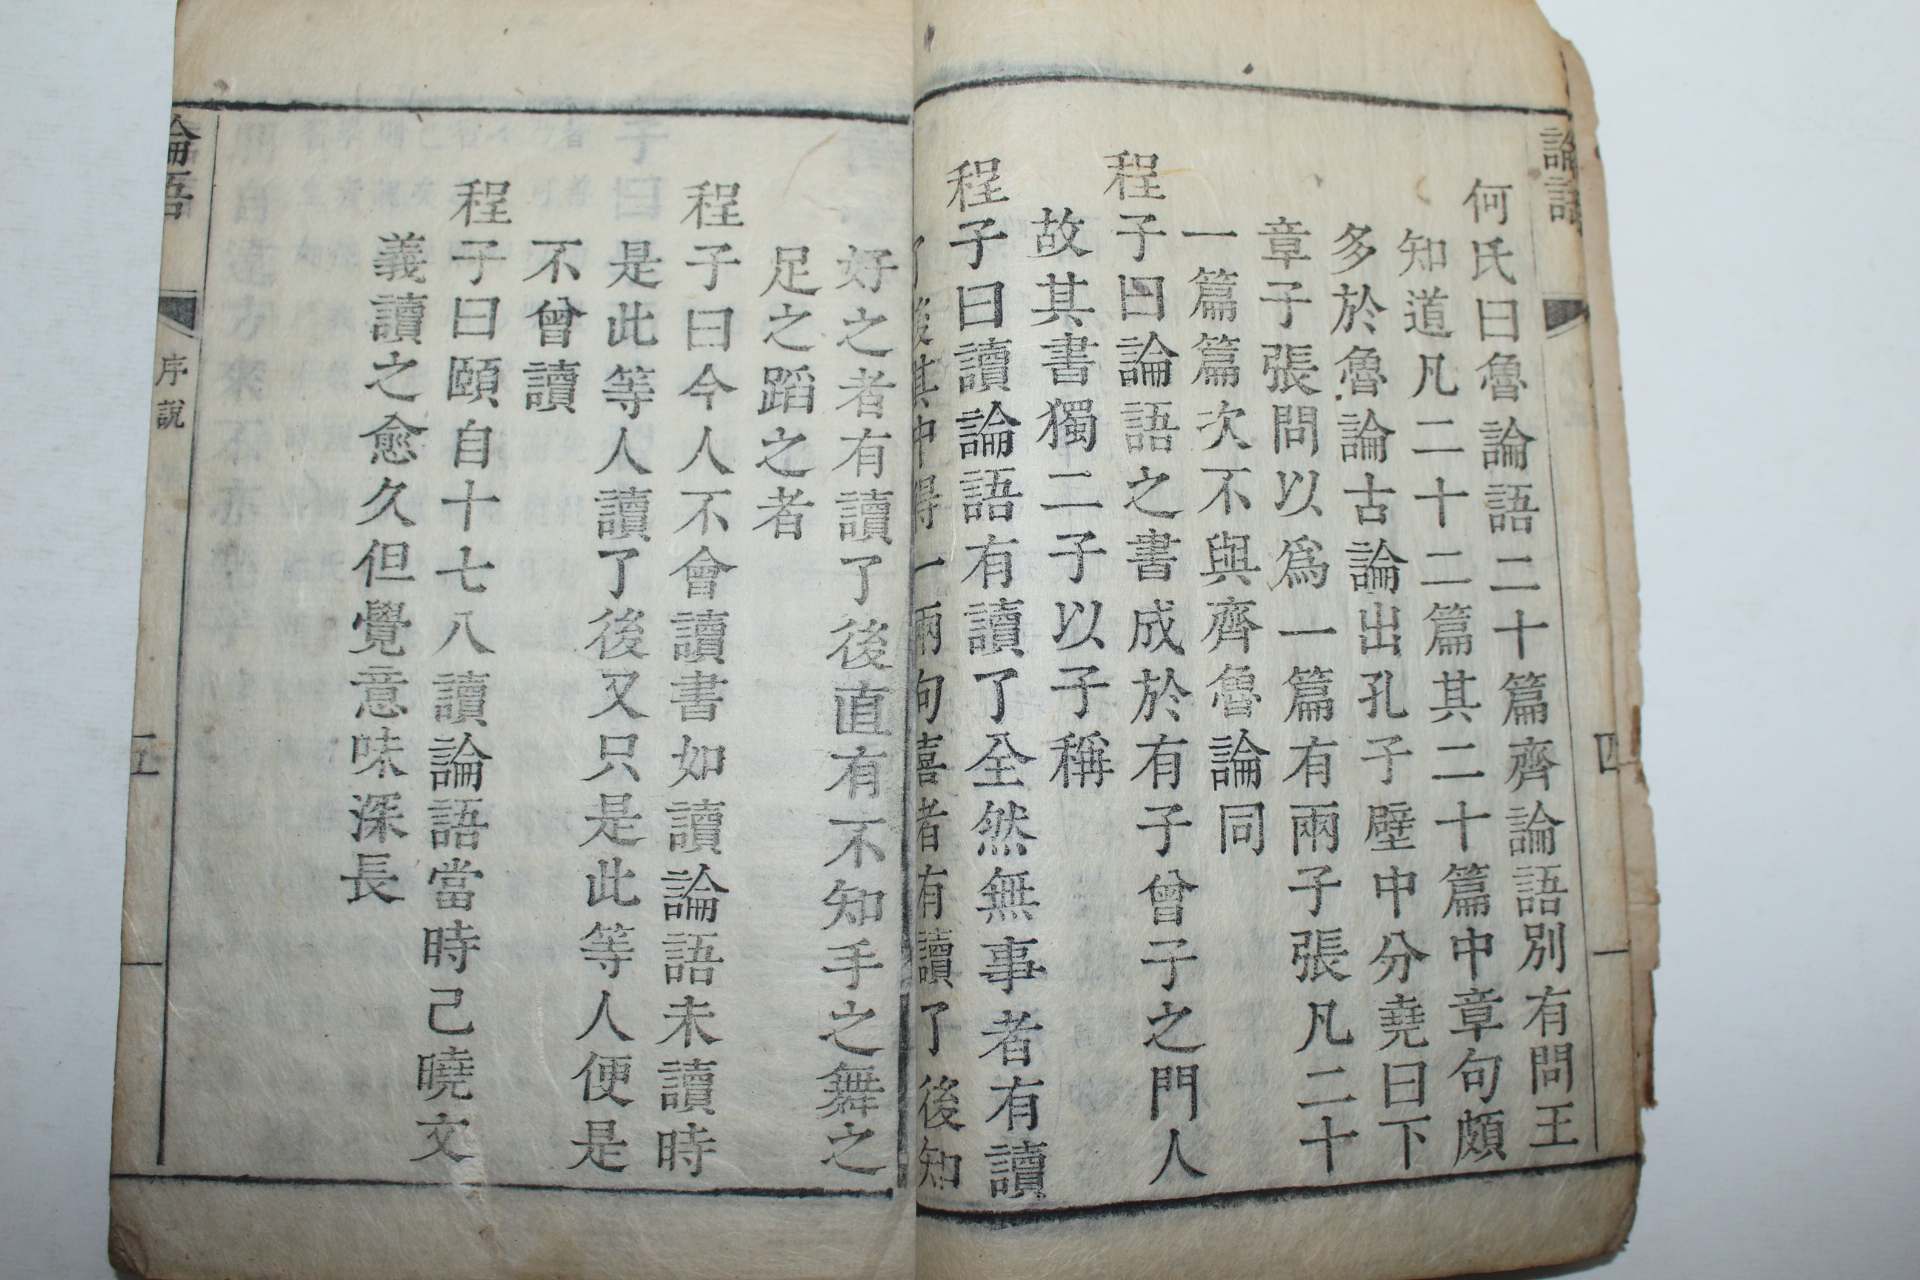 論語
四
何氏曰魯論語二十篇齊論語別有問王
知道凡二十二篇其二十篇中章句頗
多於魯論古論出孔子壁中分堯曰下
章子張問以爲一篇有兩子張凡二十
一篇篇次不與齊魯論同
程子曰論語之書成於有子曾子之門人
故其書獨二子以子稱
程子曰讀論語有讀了全然無事者有讀
了後其中得一兩句喜者有讀了後知
好之者有讀了後直有不知手之舞之
足之蹈之者
程子曰今人不會讀書如讀論語未讀時
是此等人讀了後又只是此等人便是
不曾讀
程子曰頤自十七八讀論語當時己曉文
義讀之愈久但覺意味深長
論語
序說
五